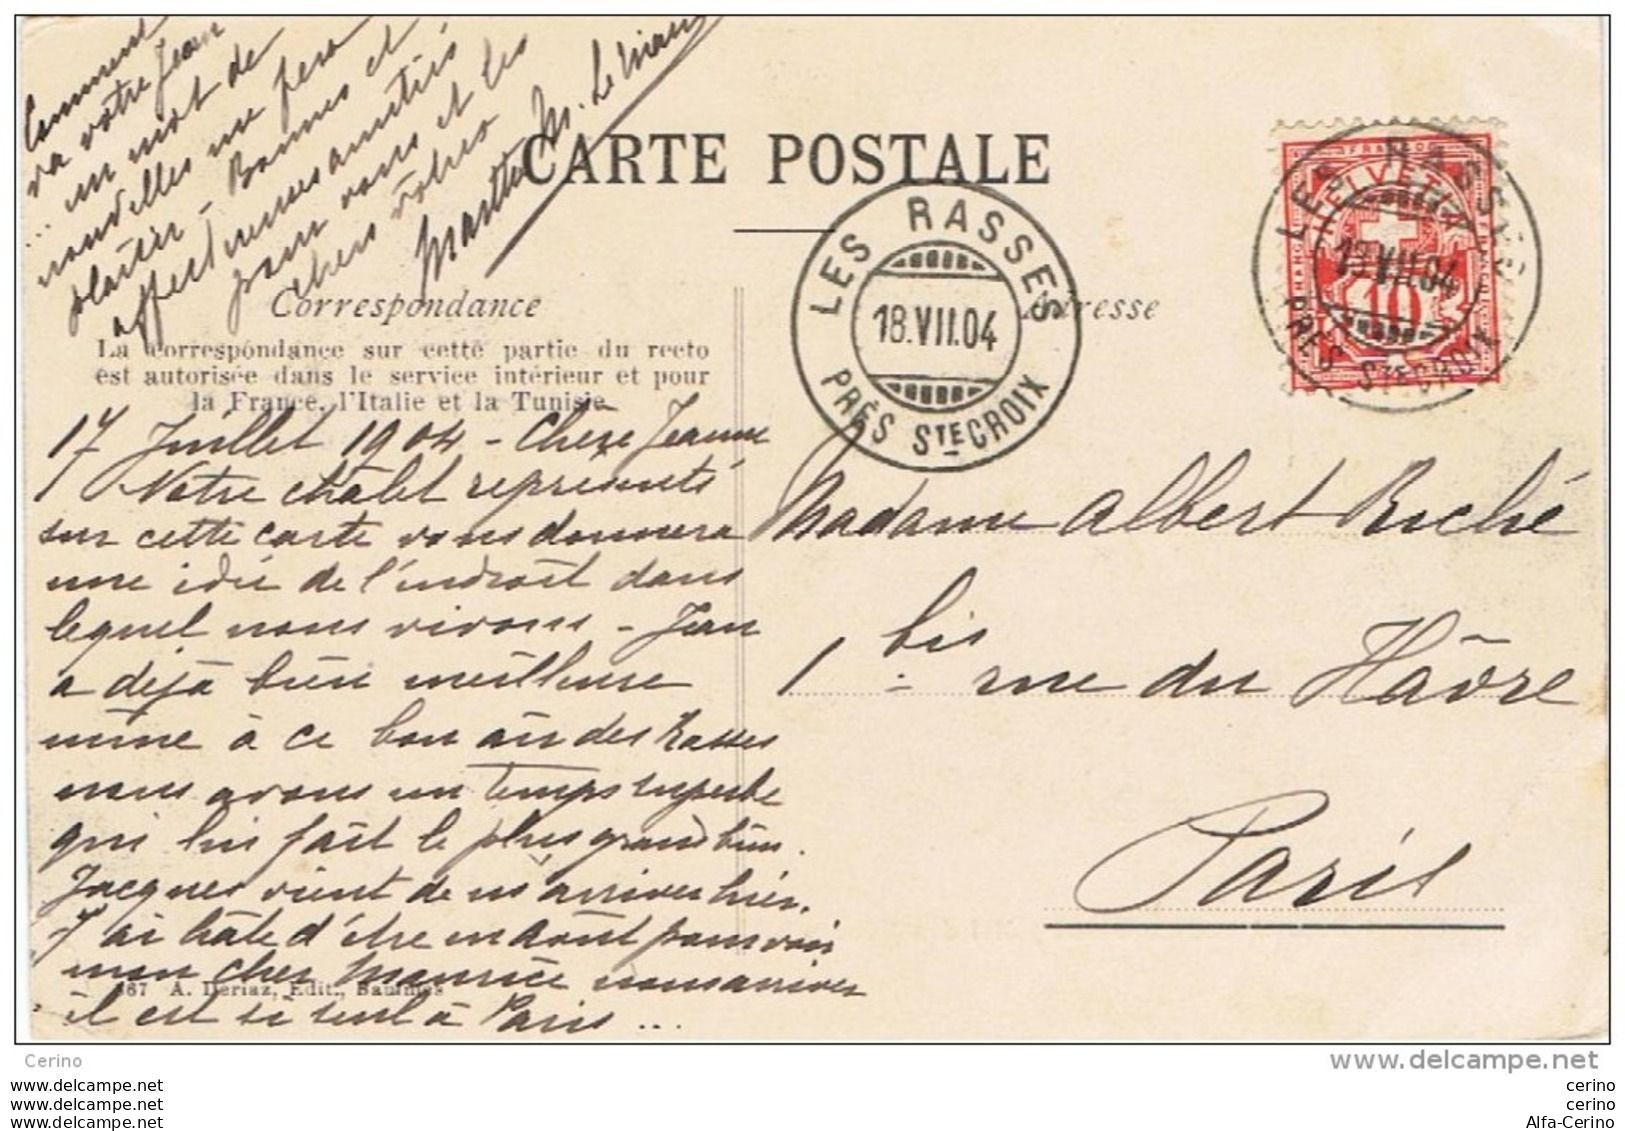 Comment
va votre Jean
... un mot de
nouvelles me fera
plaisir - Bonnes et
affectueuses amitiés
pour vous et les
chers vôtres
Marthe M.
CARTE POSTALE
LES RASSES
18.VII.04
PRÈS STE CROIX
LES RASSES
18.VII.04
PRÈS STE CROIX
FRANCO
HELVETIA
10
Correspondance
Adresse
La correspondance sur cette partie du recto
est autorisée dans le service intérieur et pour
la France, l'Italie et la Tunisie.
17 Juillet 1904 - Chère Jeanne
Notre châlet représenté
sur cette carte vous donnera
une idée de l'endroit dans
lequel nous vivons - Jean
a déjà bien meilleure
mine à ce bon air des Rasses
nous avons un temps superbe
qui lui fait le plus grand bien.
Jacques vient de m'arriver hier.
J'ai hâte d'être en Août pour voir
mon cher Maurice nous arriver
il est si seul à Paris...
A. Deriaz, Edit., Baulmes
Madame Albert Riché
1 bis rue du Hâvre
Paris
Cerino
www.delcampe.net
www.delcampe.net
www.delcampe.net
www.delcampe.net
cerino
cerino
Alfa-Cerino